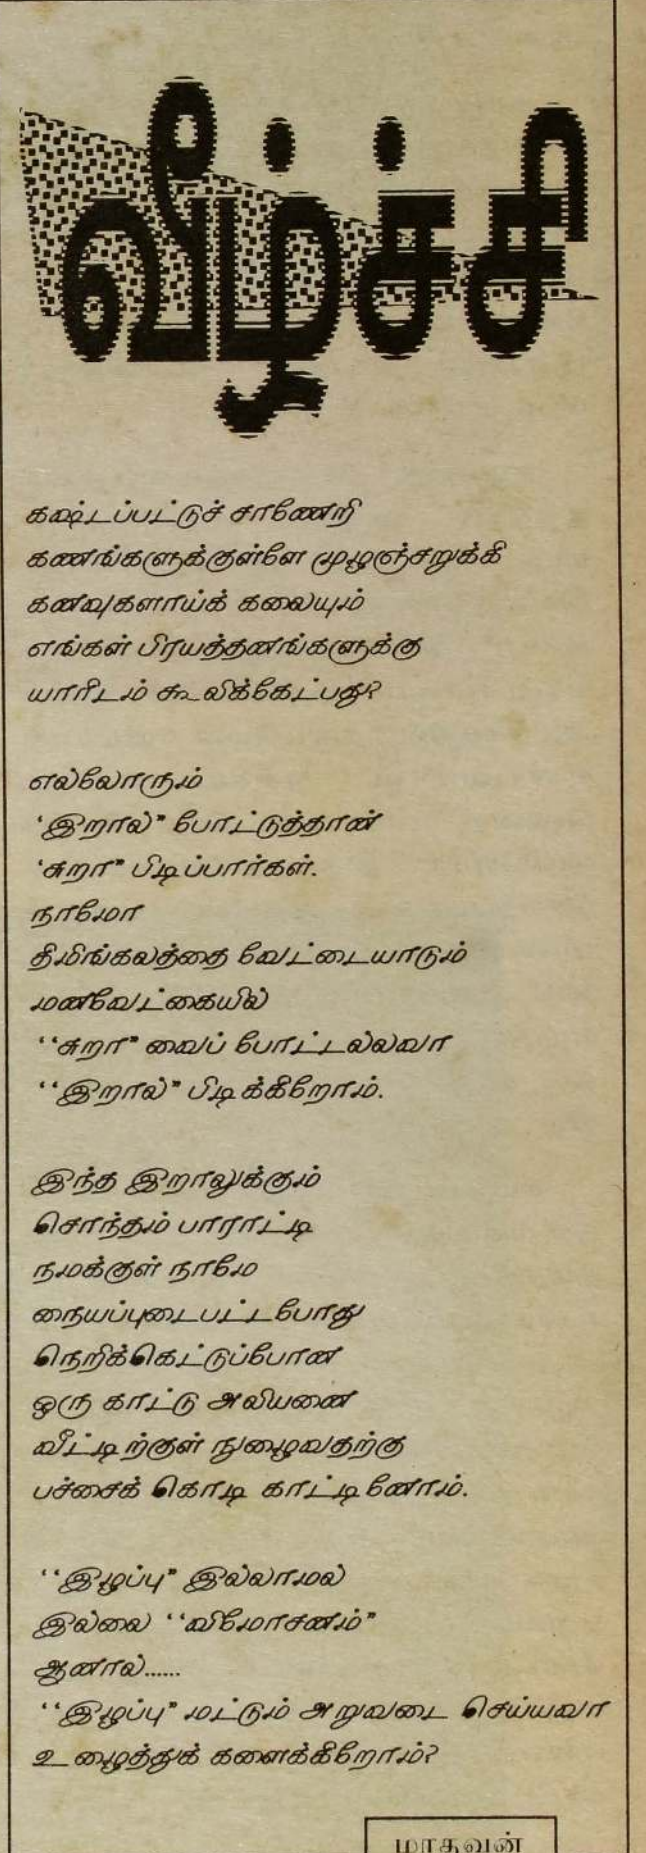 வீழ்ச்சி
கஷ்டப்பட்டுச் சாணேறி
கணங்களுக்குள்ளே முழஞ்சறுக்கி
கனவுகளாய்க் கலையும்
எங்கள் பிரயத்தனங்களுக்கு
யாரிடம் கூலிக்கேட்பது?
எல்லோரும்
‘இறால்” போட்டுத்தான்
‘சுறா” பிடிப்பார்கள்.
நாமோ
திமிங்கலத்தை வேட்டையாடும்
மனவேட்கையில்
‘‘சுறா” வைப் போட்டல்லவா
‘‘இறால்” பிடிக்கிறோம்.
இந்த இறாலுக்கும்
சொந்தம் பாராட்டி
நமக்குள் நாமே
நையப்புடைபட்டபோது
நெறிக்கெட்டுப்போன
ஒரு காட்டு அலியனை
வீட்டிற்குள் நுழைவதற்கு
பச்சைக் கொடி காட்டினோம்.
‘‘இழப்பு” இல்லாமல்
இல்லை ‘‘விமோசனம்”
ஆனால்......
‘‘இழப்பு” மட்டும் அறுவடை செய்யவா
உழைத்துக் களைக்கிறோம்?
மாதவன்